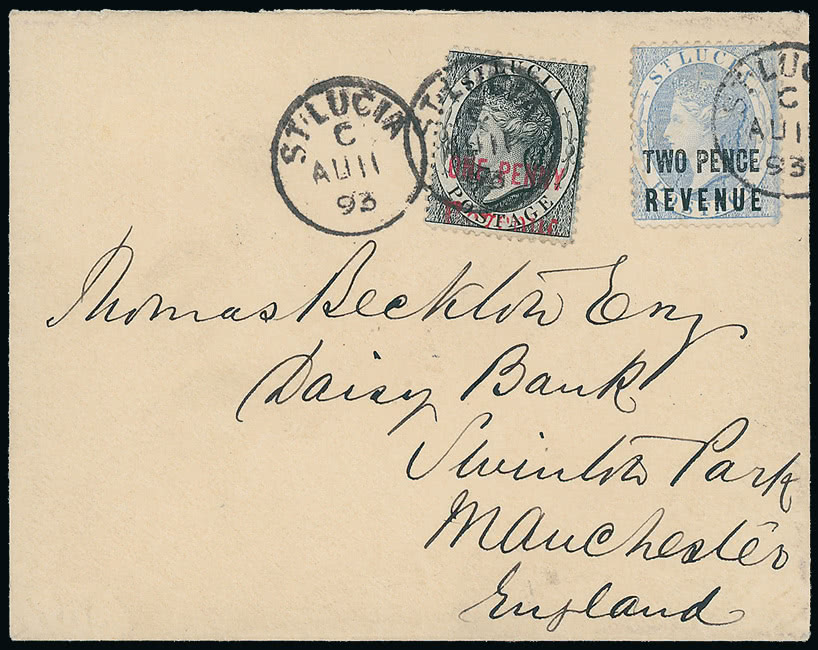 ST. LUCIA
C
AU 11
93
ST. LUCIA
POSTAGE
ONE PENNY
AU 11
93
ST LUCIA
TWO PENCE
REVENUE
LUC
C
AU 1
93
Thomas Beckton Esq
Daisy Bank
Swinton Park
Manchester
England